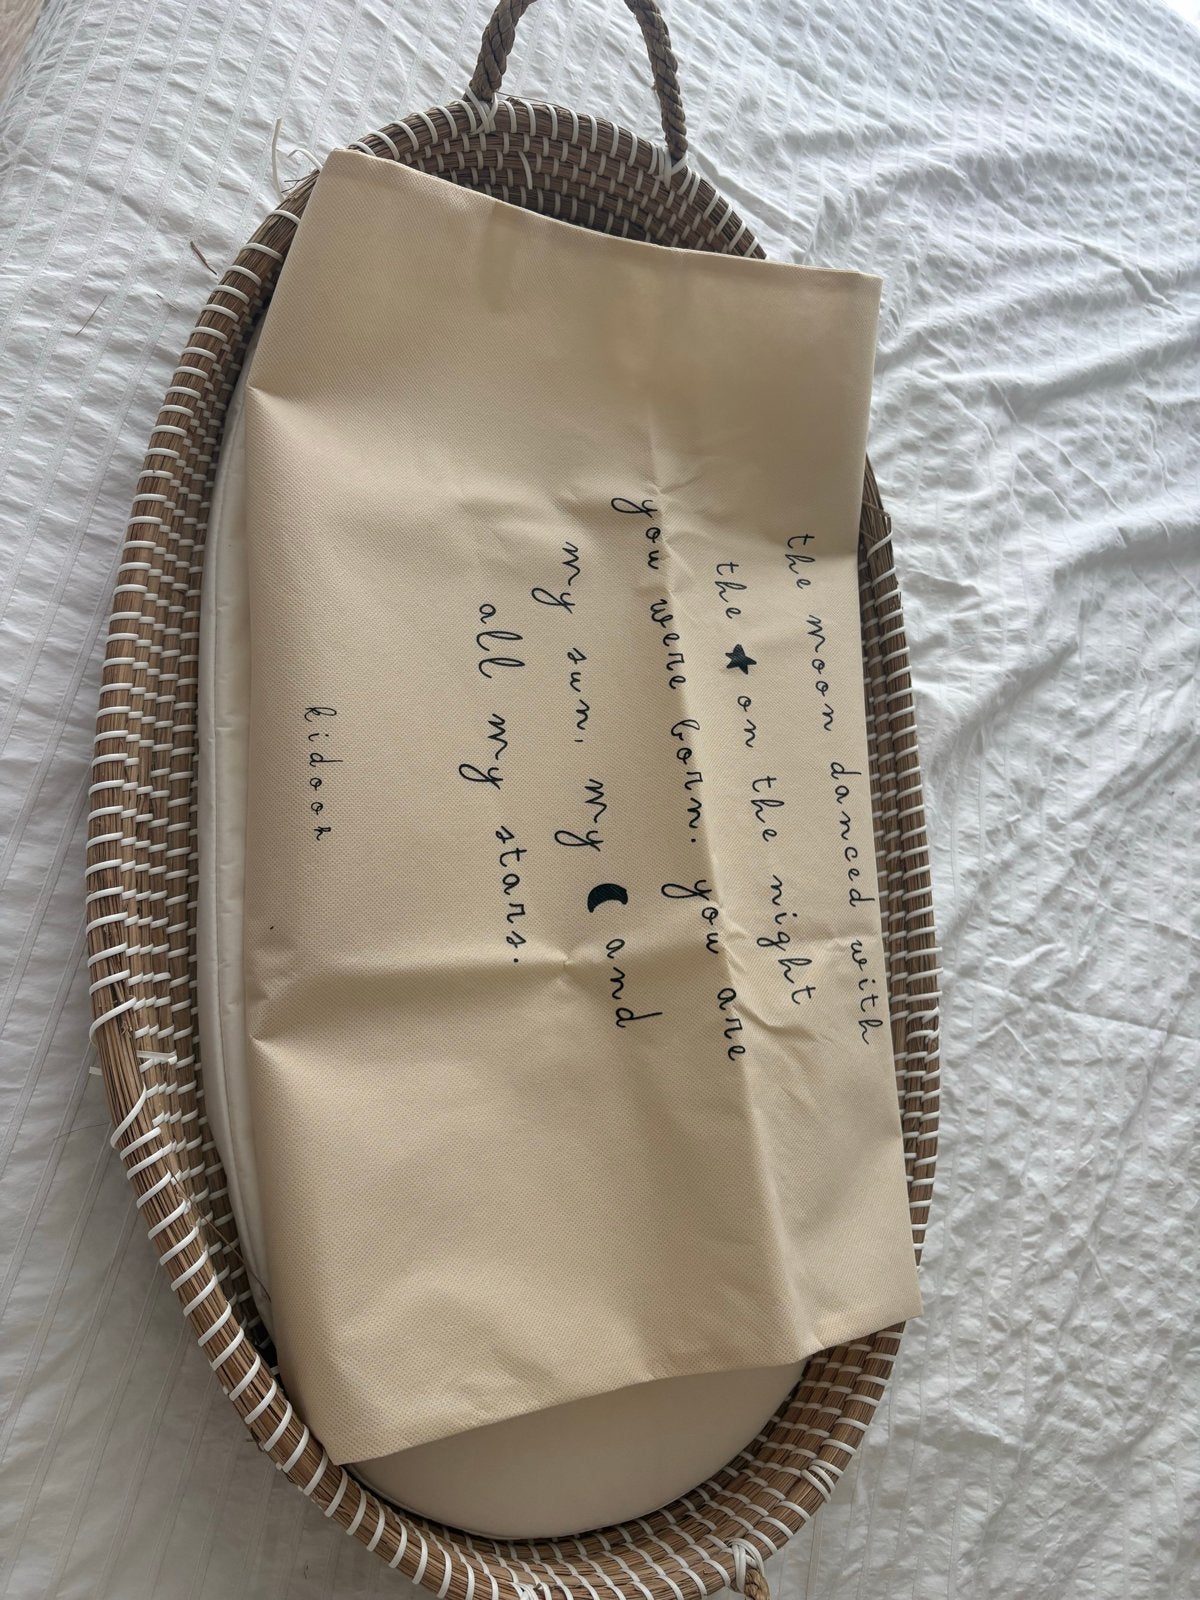 the moon danced with
the ★ on the night
you were born. you are
my sun, my 🌙 and
all my stars.
kidooh